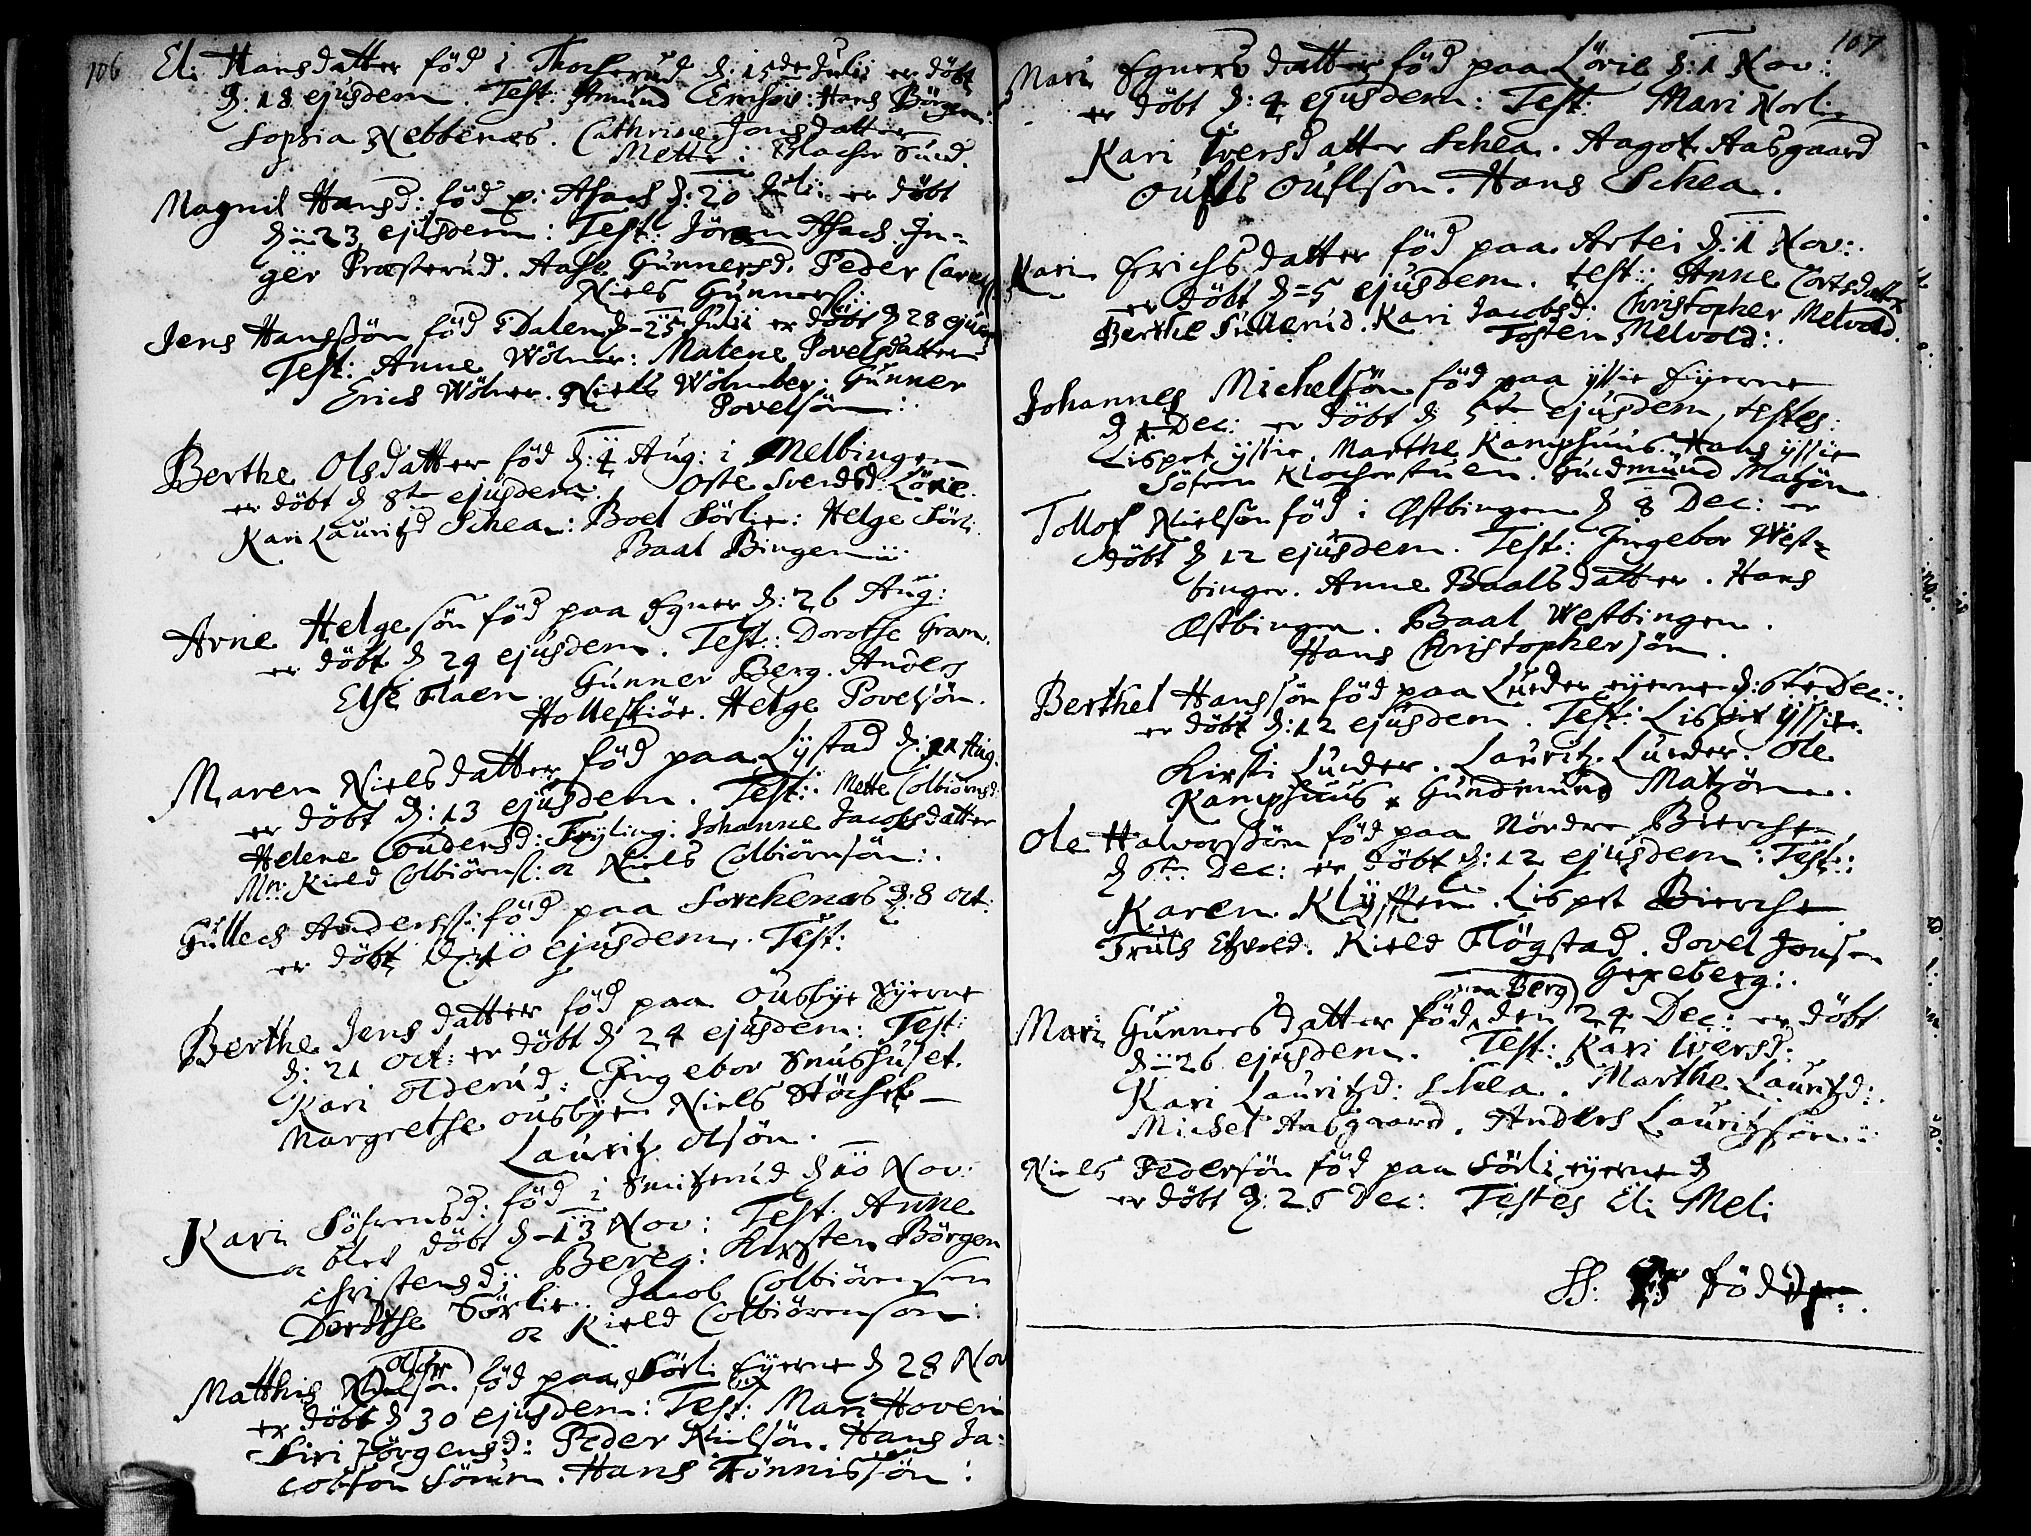 106
Eli Hansdatter föd i Thocherud d: 15de Julii er döbt
d: 18 ejusdem. Test: Amund Hans Börgen:
Sophia Nebbenæs. Cathrine Jonsdatter
Mette i Sund.
Magnil Hansd: föd p: Ahach d: 20 Juli: er döbt
d: 23 ejusdem: Test: Jören Ahach. In-
ger Præsterud. Aase Gunnersd. Peder
Niels Gunners:
Jens Hanssön föd i Dalen d: 25 Julii er döbt d 28 ejus
Test: Anne Wölner: Malene Povelsdatter
Erich Wölner. Niels Wölneber: Gunner
Povelsön:
Berthe Olsdatter föd d: 4 Aug: i Melbingen
er döbt d 8te ejusdem. Oste Svendsd: Lörie.
Kari Lauritzd Schea: Boel Sörlie: Helge Sörli:
Baal Bingen
Arne Helgesön föd paa Egner d: 26 Aug:
er döbt d 29 ejusdem. Test: Dorothe Gram.
Else Flaen. Gunner Berg. Anders
Holleskiör. Helge Povelsön.
Maren Nielsdatter föd paa Lystad d: 11 Aug.
er döbt d: 13 ejusdem. Test: Mette Colbiörnsd:
Helene Fryling: Johanne Jacobsdatter
Mn: Kield Colbiörns: oc Niels Colbiörnsön:
Gullech Anderss: föd paa Sorchenæs d: 8 Oct:
er döbt d: 10 ejusdem. Test:
Berthe Jensdatter föd paa Ousbye Eyerne
d: 21 Oct: er döbt d 24 ejusdem: Test:
Kari Olderud: Ingebor Snushuset.
Margrethe Ousbye Niels
Lauritz Olsön.
Kari Söfrensd: föd i Smiterud d 10 Nov:
oc blef döbt d 13 Nov: Test. Anne
Christensd: Bereg: Kirsten Börgen
Dorothe Sörlie. Jacob Colbiörensen
oc Kield Colbiörenson:
Matthis Olsön föd paa Sörli Eyerne d 28 Nov
er döbt d 30 ejusdem: Test: Mari Hoven
Siri Jörgensd: Peder Nielsön. Hans Ja-
cobson Sörum. Hans Tönnissön:
107
Mari Egnersdatter föd paa Lörie d: 1 Nov:
er döbt d: 4 ejusdem: Test: Mari Norli
Kari Iversdatter Schea. Aagot Aasgaard
Oufls Ouflson. Hans Schea.
Kari Erichsdatter föd paa Artei d: 1 Nov:
er döbt d=5 ejusdem. test: Anne Cortsdatter
Berthe Sullerud. Kari Jacobsd: Christopher Melvold.
Tosten Melvold:
Johannes Michelsön föd paa yssie Eyerne
d 1 Dec: er döbt d 5te ejusdem, testes:
Lispet yssie, Marthe Kamphuus. Hans yssie
Söfren Klocherstuen. Gudmund Matsön
Tollof Nielsön föd i Østbingen d 8 Dec: er
döbt d 12 ejusdem. Test: Ingebor West-
bingen. Anne Baalsdatter. Hans
Østbingen. Baal Westbingen.
Hans Christophersön.
Berthel Hanssön föd paa Lueder eyerne d: 6te Dec::
er döbt d: 12 ejusdem. Test: Lispet yssie.
Kirsti Lueder. Lauritz Lueder. Ole
Kamphuus Gundmund Matsön.
Ole Halvorsön föd paa Nördre Bierche
d 6te Dec: er döbt d: 12 ejusdem: Test:
Karen Klyfften. Lispet Bierche
Truls Kield Flögstad. Povel Jonsen
Gexeberg:
Mari Gunnersdatter föd paa Berg den 24 Dec: er döbt
d 26 ejusdem. Test: Kari Iversd:
Kari Lauritzd: Schea. Marthe Lauritzd:
Michel Aasgaard. Anders Lauritzsön
Niels Pedersön föd paa Sörli eyerne d
er döbt d: 26 Dec: Testes Eli Meli